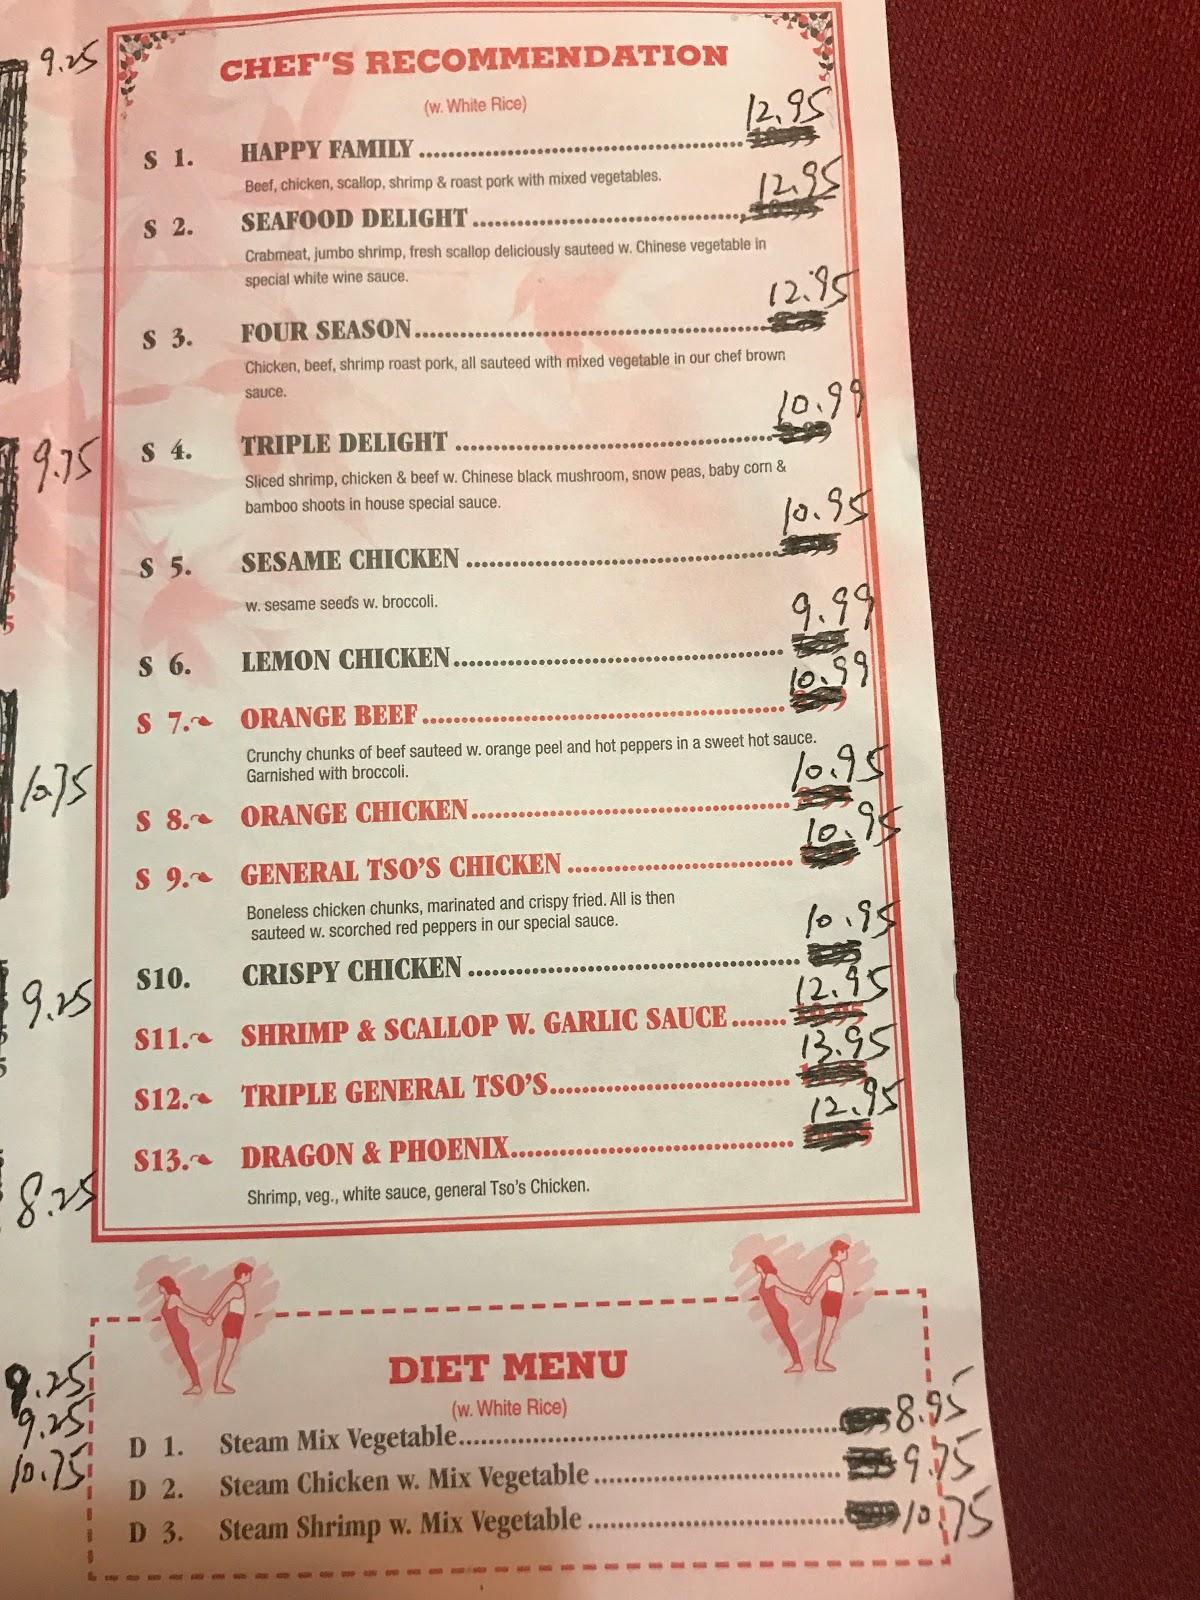 9.25
9.75
10.75
9.25
8.25
9.25
9.25
10.75
CHEF'S RECOMMENDATION
(w. White Rice)
S 1. HAPPY FAMILY 12.95
Beef, chicken, scallop, shrimp & roast pork with mixed vegetables.
S 2. SEAFOOD DELIGHT 12.95
Crabmeat, jumbo shrimp, fresh scallop deliciously sauteed w. Chinese vegetable in
special white wine sauce.
S 3. FOUR SEASON 12.95
Chicken, beef, shrimp roast pork, all sauteed with mixed vegetable in our chef brown
sauce.
S 4. TRIPLE DELIGHT 10.99
Sliced shrimp, chicken & beef w. Chinese black mushroom, snow peas, baby corn &
bamboo shoots in house special sauce.
S 5. SESAME CHICKEN 10.95
w. sesame seeds w. broccoli.
S 6. LEMON CHICKEN 9.99
S 7. ORANGE BEEF 10.99
Crunchy chunks of beef sauteed w. orange peel and hot peppers in a sweet hot sauce.
Garnished with broccoli.
S 8. ORANGE CHICKEN 10.95
S 9. GENERAL TSO'S CHICKEN 10.95
Boneless chicken chunks, marinated and crispy fried. All is then
sauteed w. scorched red peppers in our special sauce.
S10. CRISPY CHICKEN 10.95
S11. SHRIMP & SCALLOP W. GARLIC SAUCE 12.95
S12. TRIPLE GENERAL TSO'S 13.95
S13. DRAGON & PHOENIX 12.95
Shrimp, veg., white sauce, general Tso's Chicken.
DIET MENU
(w. White Rice)
D 1. Steam Mix Vegetable 8.95
D 2. Steam Chicken w. Mix Vegetable 9.75
D 3. Steam Shrimp w. Mix Vegetable 10.75